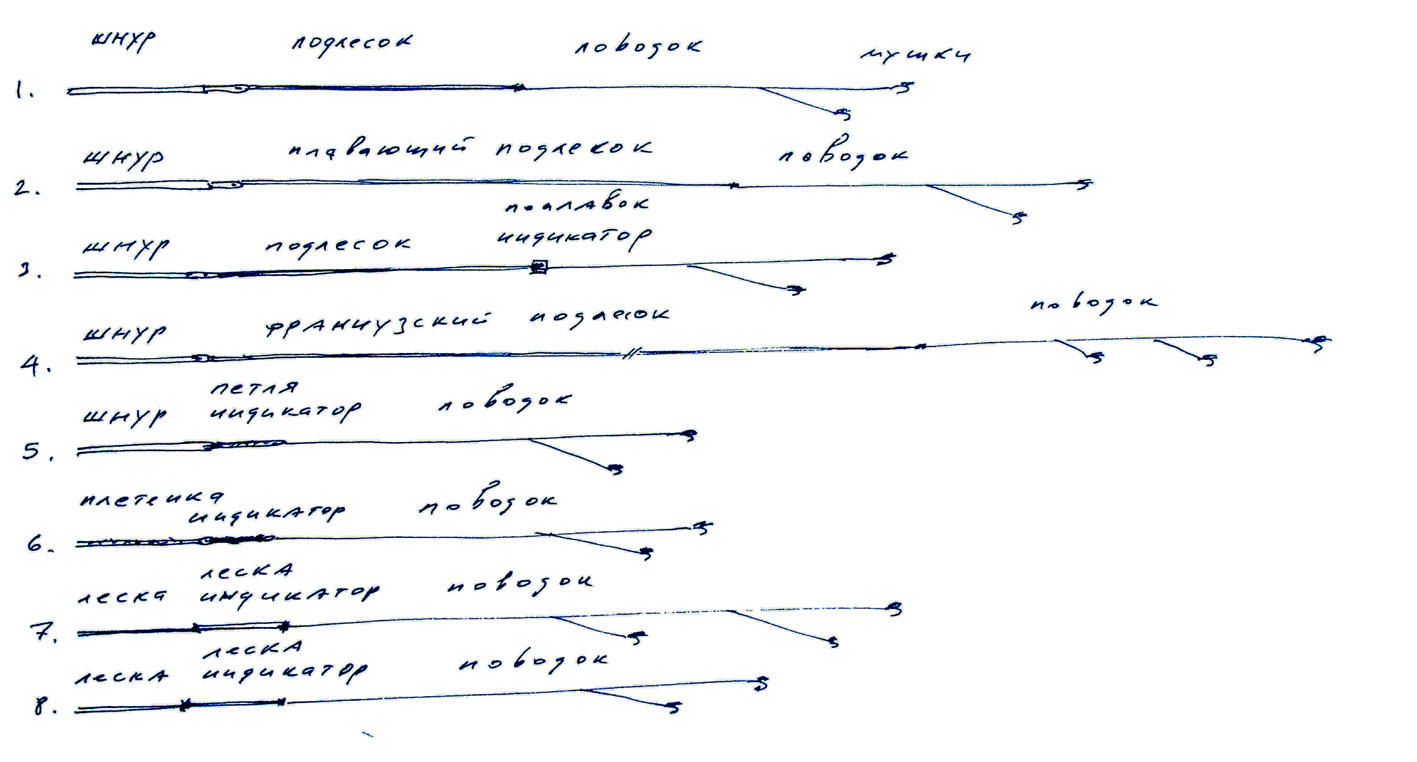 шнур подлесок поводок мушки
1.
шнур плавающий подлесок поводок
2.
поплавок
шнур подлесок индикатор
3.
шнур французский подлесок поводок
4.
петля
шнур индикатор поводок
5.
плетенка индикатор поводок
6.
леска
леска индикатор поводок
7.
леска
леска индикатор поводок
8.